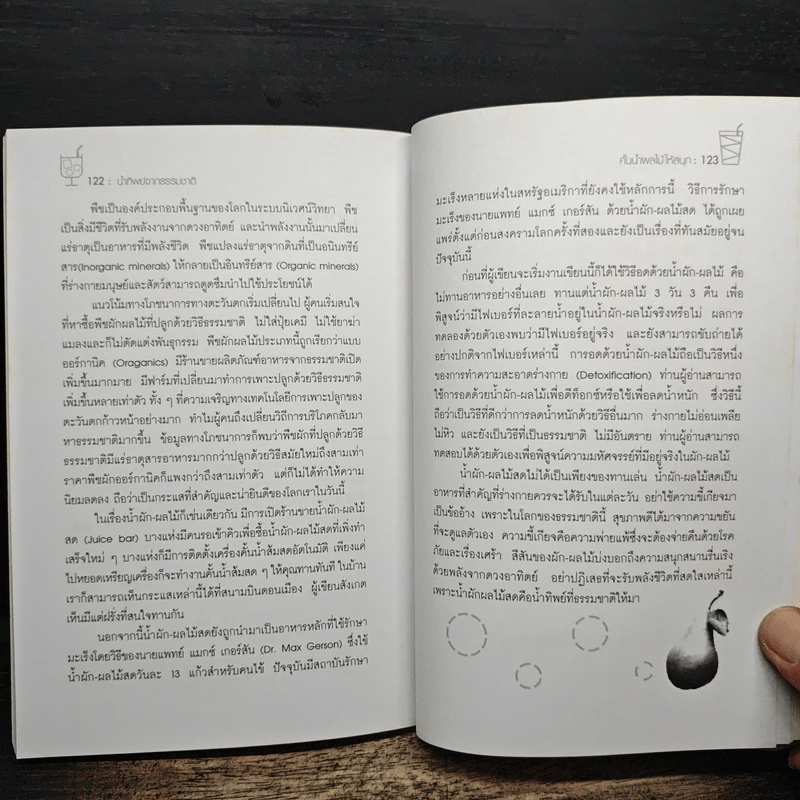 122 : น้ำทิพย์จากธรรมชาติ
พืชเป็นองค์ประกอบพื้นฐานของโลกในระบบนิเวศน์วิทยา พืช
เป็นสิ่งมีชีวิตที่รับพลังงานจากดวงอาทิตย์ และนำพลังงานนั้นมาเปลี่ยน
แร่ธาตุเป็นอาหารที่มีพลังชีวิต พืชแปลงแร่ธาตุจากดินที่เป็นอนินทรีย์
สาร(Inorganic minerals) ให้กลายเป็นอินทรีย์สาร (Organic minerals)
ที่ร่างกายมนุษย์และสัตว์สามารถดูดซึมนำไปใช้ประโยชน์ได้
แนวโน้มทางโภชนาการทางตะวันตกเริ่มเปลี่ยนไป ผู้คนเริ่มสนใจ
ที่หาซื้อพืชผักผลไม้ที่ปลูกด้วยวิธีธรรมชาติ ไม่ใส่ปุ๋ยเคมี ไม่ใช้ยาฆ่า
แมลงและก็ไม่ตัดแต่งพันธุกรรม พืชผลไม้ประเภทนี้ถูกเรียกว่าแบบ
ออร์กานิค (Oraganics) มีร้านขายผลิตภัณฑ์อาหารจากธรรมชาติเปิด
เพิ่มขึ้นมากมาย มีฟาร์มที่เปลี่ยนมาทำการเพาะปลูกด้วยวิธีธรรมชาติ
เพิ่มขึ้นหลายเท่าตัว ทั้ง ๆ ที่ความเจริญทางเทคโนโลยีการเพาะปลูกของ
ตะวันตกก้าวหน้าอย่างมาก ทำไมผู้คนถึงเปลี่ยนวิถีการบริโภคกลับมา
หาธรรมชาติมากขึ้น ข้อมูลทางโภชนาการก็พบว่าพืชผักที่ปลูกด้วยวิธี
ธรรมชาติมีแร่ธาตุสารอาหารมากกว่าปลูกด้วยวิธีสมัยใหม่ถึงสามเท่า
ราคาพืชผักออร์กานิคก็แพงกว่าถึงสามเท่าตัว แต่ก็ไม่ได้ทำให้ความ
นิยมลดลง ถือว่าเป็นกระแสที่สำคัญและน่ายินดีของโลกเราในวันนี้
ในเรื่องน้ำผัก-ผลไม้ก็เช่นเดียวกัน มีการเปิดร้านขายน้ำผัก-ผลไม้
สด (Juice bar) บางแห่งมีคนรอเข้าคิวเพื่อซื้อน้ำผัก-ผลไม้สดที่เพิ่งทำ
เสร็จใหม่ ๆ บางแห่งก็มีการติดตั้งเครื่องคั้นน้ำส้มสดอัตโนมัติ เพียงแค่
ไปหยอดเหรียญเครื่องก็จะทำงานคั้นน้ำส้มสด ๆ ให้คุณทานทันที ในบ้าน
เราก็สามารถเห็นกระแสเหล่านี้ได้ที่สนามบินดอนเมือง ผู้เขียนสังเกต
เห็นมีแต่ฝรั่งที่สนใจทานกัน
นอกจากนี้น้ำผัก-ผลไม้สดยังถูกนำมาเป็นอาหารหลักที่ใช้รักษา
มะเร็งโดยวิธีของนายแพทย์ แมกซ์ เกอร์สัน (Dr. Max Gerson) ซึ่งใช้
น้ำผัก-ผลไม้สดวันละ 13 แก้วสำหรับคนไข้ ปัจจุบันมีสถาบันรักษา
คั้นน้ำผลไม้ให้สนุก : 123
มะเร็งหลายแห่งในสหรัฐอเมริกาที่ยังคงใช้หลักการนี้ วิธีการรักษา
มะเร็งของนายแพทย์ แมกซ์ เกอร์สัน ด้วยน้ำผัก-ผลไม้สด ได้ถูกเผย
แพร่ตั้งแต่ก่อนสงครามโลกครั้งที่สองและยังเป็นเรื่องที่ทันสมัยอยู่จน
ปัจจุบันนี้
ก่อนที่ผู้เขียนจะเริ่มงานเขียนนี้ก็ได้ใช้วิธีอดด้วยน้ำผัก-ผลไม้ คือ
ไม่ทานอาหารอย่างอื่นเลย ทานแต่น้ำผัก-ผลไม้ 3 วัน 3 คืน เพื่อ
พิสูจน์ว่ามีไฟเบอร์ที่ละลายน้ำอยู่ในน้ำผัก-ผลไม้จริงหรือไม่ ผลการ
ทดลองด้วยตัวเองพบว่ามีไฟเบอร์อยู่จริง และยังสามารถขับถ่ายได้
อย่างปกติจากไฟเบอร์เหล่านี้ การอดด้วยน้ำผัก-ผลไม้ถือเป็นวิธีหนึ่ง
ของการทำความสะอาดร่างกาย (Detoxification) ท่านผู้อ่านสามารถ
ใช้การอดด้วยน้ำผัก-ผลไม้เพื่อดีท็อกซ์หรือใช้เพื่อลดน้ำหนัก ซึ่งวิธีนี้
ถือว่าเป็นวิธีที่ดีกว่าการลดน้ำหนักด้วยวิธีอื่นมาก ร่างกายไม่อ่อนเพลีย
ไม่หิว และยังเป็นวิธีที่เป็นธรรมชาติ ไม่มีอันตราย ท่านผู้อ่านสามารถ
ทดสอบได้ด้วยตัวเองเพื่อพิสูจน์ความมหัศจรรย์ที่มีอยู่จริงในผัก-ผลไม้
น้ำผัก-ผลไม้สดไม่ได้เป็นเพียงของทานเล่น น้ำผัก-ผลไม้สดเป็น
อาหารที่สำคัญที่ร่างกายควรจะได้รับในแต่ละวัน อย่าใช้ความขี้เกียจมา
เป็นข้ออ้าง เพราะในโลกของธรรมชาตินี้ สุขภาพดีได้มาจากความขยัน
ที่จะดูแลตัวเอง ความขี้เกียจคือความพ่ายแพ้ซึ่งจะต้องจ่ายคืนด้วยโรค
ภัยและเรื่องเศร้า สีสันของผัก-ผลไม้บ่งบอกถึงความสนุกสนานรื่นเริง
ด้วยพลังจากดวงอาทิตย์ อย่าปฏิเสธที่จะรับพลังชีวิตที่สดใสเหล่านี้
เพราะน้ำผักผลไม้สดคือน้ำทิพย์ที่ธรรมชาติให้มา